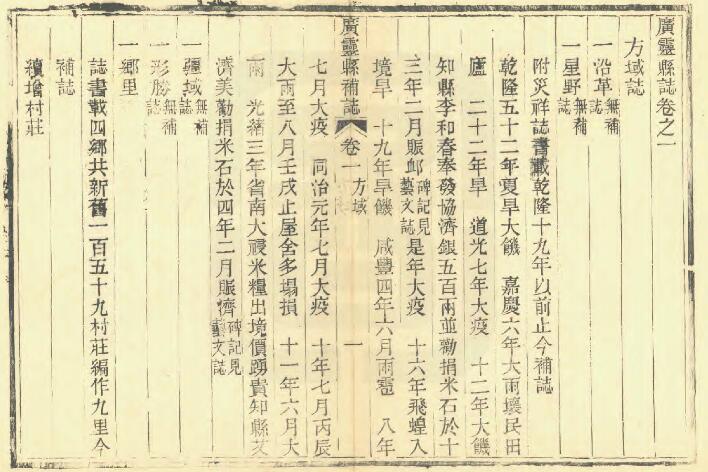 廣靈縣誌卷之一
方域誌
一沿革無補誌
一星野無補誌
附災祥誌書載乾隆十九年以前止今補誌
乾隆五十二年夏旱大饑　嘉慶六年大雨壞民田
廬　二十二年旱　道光七年大疫　十二年大饑
知縣李和春奉發協濟銀五百兩並勸捐米石於十
三年二月賑邮碑記見藝文誌是年大疫　十六年飛蝗入
境旱　十九年旱饑　咸豐四年六月雨雹　八年
廣靈縣補誌　卷一　方域　一
七月大疫　同治元年七月大疫　十年七月丙辰
大雨至八月壬戌止屋舍多塌損　十一年六月大
雨　光緒三年省南大祲米糧出境價踴貴知縣
濟美勸捐米石於四年二月賑濟碑記見藝文誌
一疆域無補誌
一形勝無補誌
一鄉里
誌書載四鄉共新舊一百五十九村莊編作九里今
補誌
續增村莊